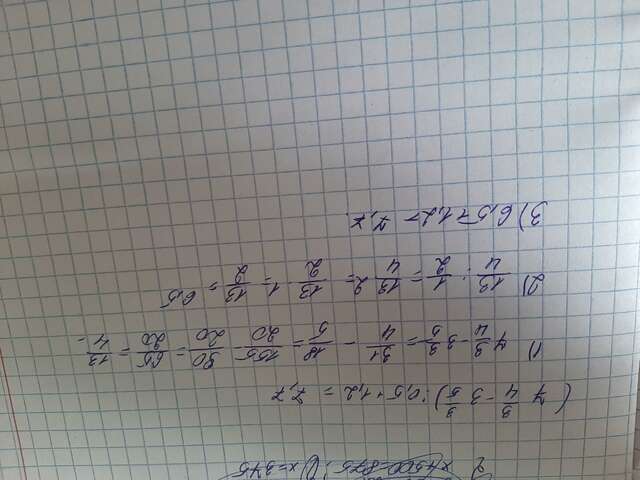 (7 3/4 - 3 3/5) : 0,5 + 1,2 = 7,7
1) 7 3/4 - 3 3/5 = 31/4 - 18/5 = 155/20 - 90/20 = 65/20 = 13/4
2) 13/4 : 1/2 = 13/4 · 2 = 13/2 · 1 = 13/2 = 6,5
3) 6,5 + 1,2 = 7,7.